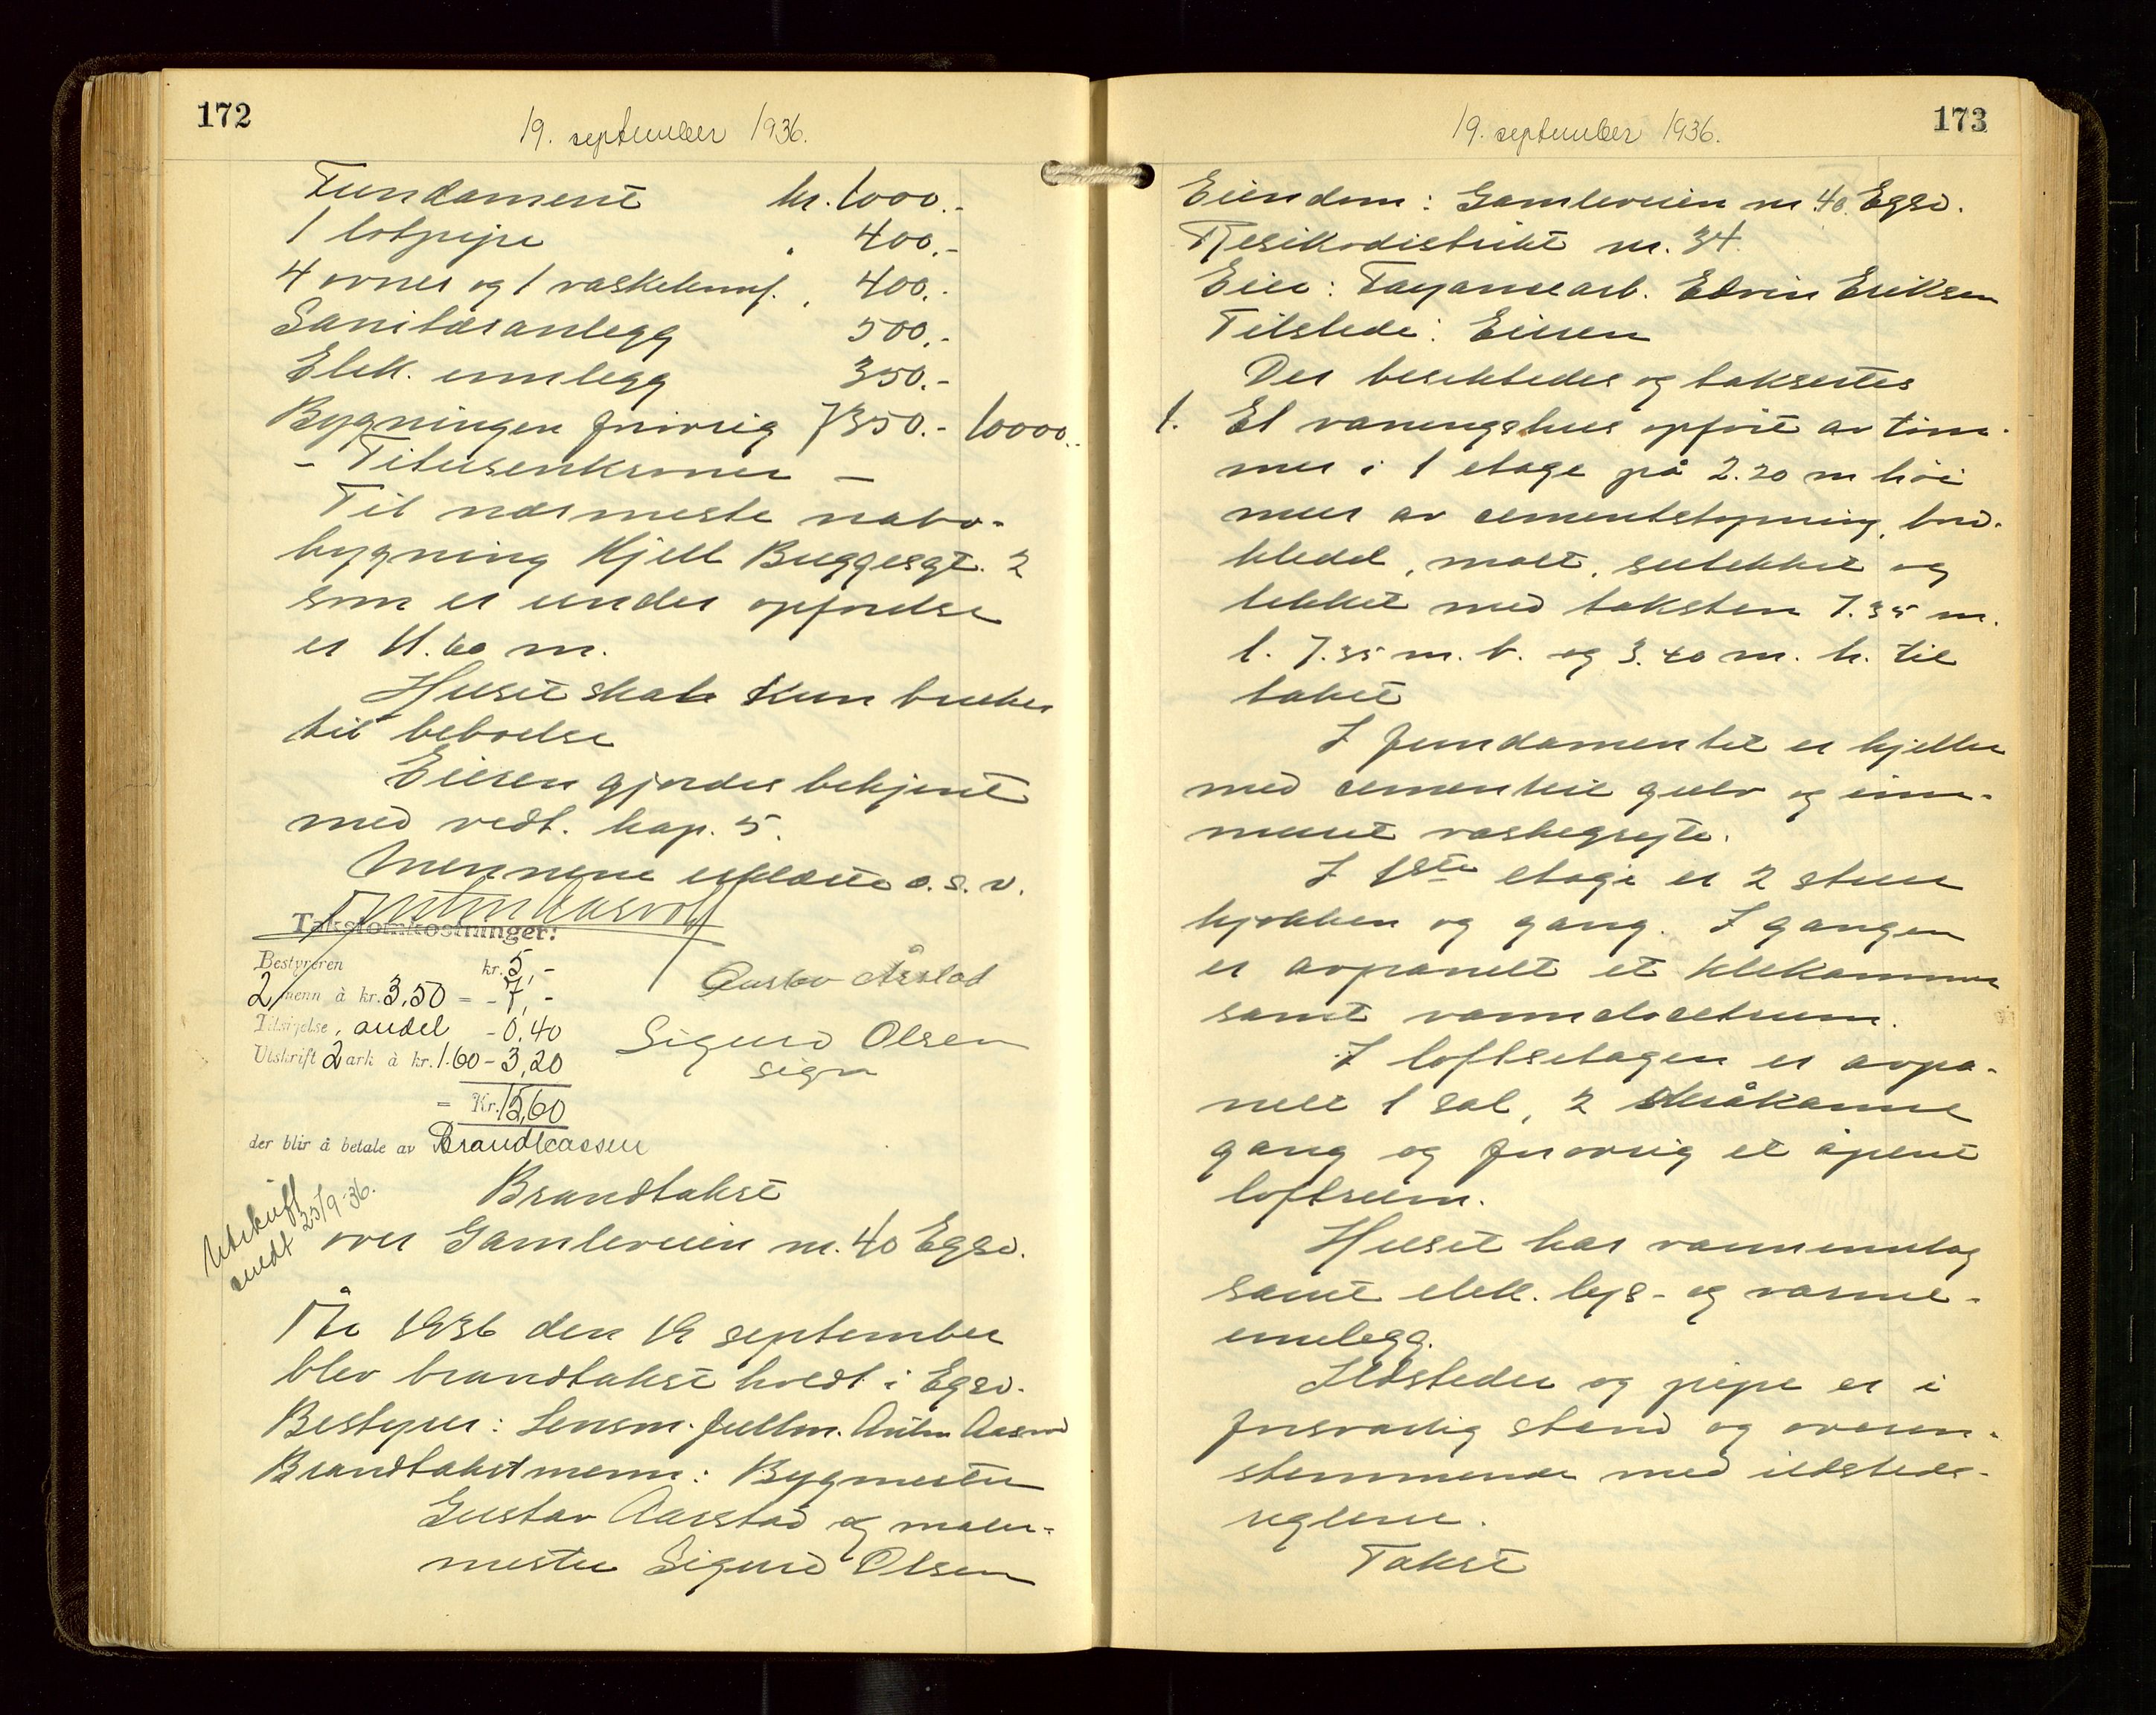 172
19. september 1936.
Fundament kr. 1000.-
1 lotpipe " 400.-
4 ovner og 1 vaskekomf. " 400.-
Sanitæranlegg 500.-
Elek. innlegg 350.-
Bygningen forøvrig 7350.- 10000.-
- Titusenkroner -
Til nærmeste nabo-
bygning Kjell Buggesgt. 2
som er under opførelse
er 11.60 m.
Huset skal kun brukes
til beboelse
Eieren gjordes bekjent
med vedt. kap. 5.
Mennene uttalte o.s.v.
Takstomkostninger:
Bestyreren kr. 5,-
2 menn à kr. 3,50 = - 7,-
Gustav Årstad
Tilsigelse, andel - 0,40
Sigurd Olsen
Utskrift 2 ark à kr. 1.60 - 3,20
sign
= Kr. 15,60
der blir å betale av Brandkassen
Utskrift
sendt 25/9-36.
Brandtakst
over Gamleveien nr. 40 Egsø.
År 1936 den 19 september
blev brandtakst holdt i Egsø.
Bestyrer: Lensm. fullm. Anton
Brandtakstmenn: Bygmester
Gustav Aarstad og maler-
mester Sigurd Olsen
173
19. september 1936.
Eiendom: Gamleveien nr. 40. Egsø.
Resikodistrikt nr. 34.
Eier: Fayansearb. Edvin Eriksen
Tilstede: Eieren
Der besiktedes og taksertes
1. Et våningshus opført av tøm-
mer i 1 etage på 2.20 m høi
mur av cementstøpning, bord-
kledd, malt, sutekket og
tekket med taksten 7.35 m.
l. 7.35 m. b. og 3.40 m. h. til
taket
I fundamentet er kjeller
med cementert gulv og inn-
muret vaskegryte.
I 1ste etage er 2 stuer
kjøkken og gang. I gangen
er avpanelt et klekammer
samt vannclosetrum.
I loftsetagen er avpa-
nelt 1 sal, 2 skråkammer
gang og forøvrig et åpent
loftsrum.
Huset har vanninntag
samt elek. lys- og varme-
innlegg.
Ildsteder og pipe er i
forsvarlig stand og overen-
stemmende med ildsteds-
reglene.
Takst